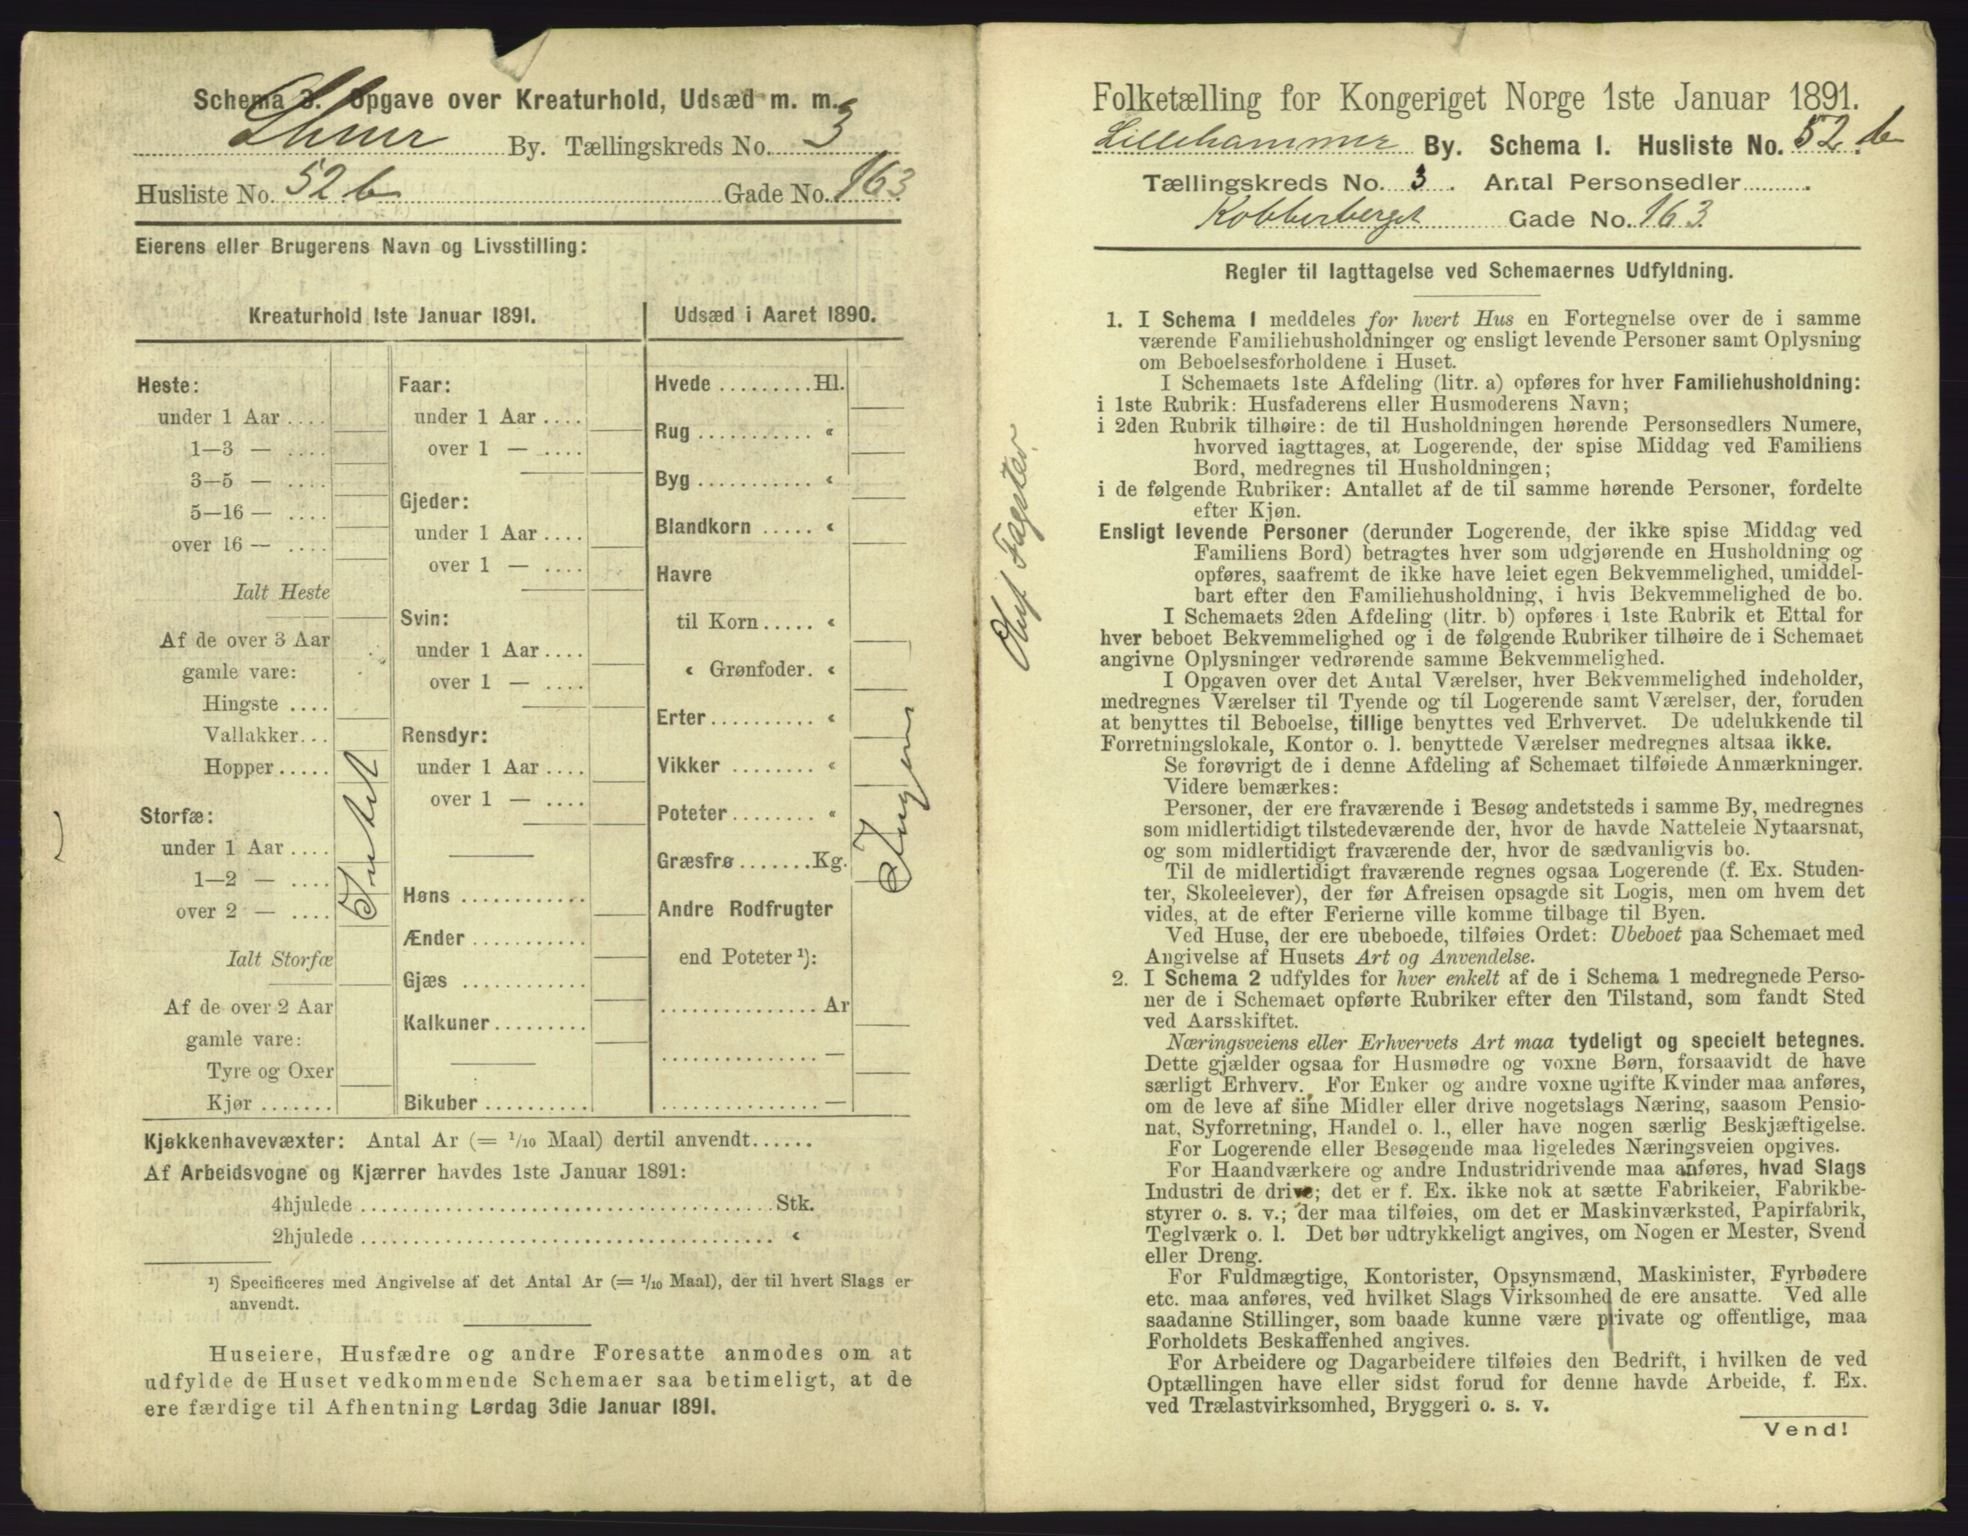 Schema 3. Opgave over Kreaturhold, Udsæd m. m.
Lhmr By. Tællingskreds No. 3
Husliste No. 52 b Gade No. 163
Eierens eller Brugerens Navn og Livsstilling:
Kreaturhold 1ste Januar 1891.
Heste:
under 1 Aar ....
1—3 — ....
3—5 — ....
5—16 — ....
over 16 — ....
Ialt Heste
Af de over 3 Aar
gamle vare:
Hingste ....
Vallakker...
Hopper.....
Storfæ:
under 1 Aar ....
1—2 — ....
over 2 — ....
Ialt Storfæ
Af de over 2 Aar
gamle vare:
Tyre og Oxer
Kjør .......
Intet
Faar:
under 1 Aar ....
over 1 — ....
Gjeder:
under 1 Aar ....
over 1 — ....
Svin:
under 1 Aar ....
over 1 — ....
Rensdyr:
under 1 Aar ....
over 1 — ....
Høns ...........
Ænder ..........
Gjæs ...........
Kalkuner........
Bikuber .........
Udsæd i Aaret 1890.
Hvede .........Hl.
Rug ........... «
Byg ........... «
Blandkorn ..... «
Havre
til Korn ..... «
« Grønfoder. «
Erter .......... «
Vikker ........ «
Poteter........ «
Græsfrø .......Kg.
Andre Rodfrugter
end Poteter ¹):
............... Ar
............... —
............... —
Ingen
Kjøkkenhavevæxter: Antal Ar (= 1/10 Maal) dertil anvendt......
Af Arbeidsvogne og Kjærrer havdes 1ste Januar 1891:
4hjulede ........................................ Stk.
2hjulede ........................................ «
¹) Specificeres med Angivelse af det Antal Ar (= 1/10 Maal), der til hvert Slags er
anvendt.
Huseiere, Husfædre og andre Foresatte anmodes om at
udfylde de Huset vedkommende Schemaer saa betimeligt, at de
ere færdige til Afhentning Lørdag 3die Januar 1891.
Oluf Fagster.
Folketælling for Kongeriget Norge 1ste Januar 1891.
Lillehammer By. Schema I. Husliste No. 52. b
Tællingskreds No. 3. Antal Personsedler..........
Kobberberget Gade No. 163.
Regler til Iagttagelse ved Schemaernes Udfyldning.
1. I Schema 1 meddeles for hvert Hus en Fortegnelse over de i samme
værende Familiehusholdninger og ensligt levende Personer samt Oplysning
om Beboelsesforholdene i Huset.
I Schemaets 1ste Afdeling (litr. a) opføres for hver Familiehusholdning:
i 1ste Rubrik: Husfaderens eller Husmoderens Navn;
i 2den Rubrik tilhøire: de til Husholdningen hørende Personsedlers Numere,
hvorved iagttages, at Logerende, der spise Middag ved Familiens
Bord, medregnes til Husholdningen;
i de følgende Rubriker: Antallet af de til samme hørende Personer, fordelte
efter Kjøn.
Ensligt levende Personer (derunder Logerende, der ikke spise Middag ved
Familiens Bord) betragtes hver som udgjørende en Husholdning og
opføres, saafremt de ikke have leiet egen Bekvemmelighed, umiddel-
bart efter den Familiehusholdning, i hvis Bekvemmelighed de bo.
I Schemaets 2den Afdeling (litr. b) opføres i 1ste Rubrik et Ettal for
hver beboet Bekvemmelighed og i de følgende Rubriker tilhøire de i Schemaet
angivne Oplysninger vedrørende samme Bekvemmelighed.
I Opgaven over det Antal Værelser, hver Bekvemmelighed indeholder,
medregnes Værelser til Tyende og til Logerende samt Værelser, der, foruden
at benyttes til Beboelse, tillige benyttes ved Erhvervet. De udelukkende til
Forretningslokale, Kontor o. l. benyttede Værelser medregnes altsaa ikke.
Se forøvrigt de i denne Afdeling af Schemaet tilføiede Anmærkninger.
Videre bemærkes:
Personer, der ere fraværende i Besøg andetsteds i samme By, medregnes
som midlertidigt tilstedeværende der, hvor de havde Natteleie Nytaarsnat,
og som midlertidigt fraværende der, hvor de sædvanligvis bo.
Til de midlertidigt fraværende regnes ogsaa Logerende (f. Ex. Studen-
ter, Skoleelever), der før Afreisen opsagde sit Logis, men om hvem det
vides, at de efter Ferierne ville komme tilbage til Byen.
Ved Huse, der ere ubeboede, tilføies Ordet: Ubeboet paa Schemaet med
Angivelse af Husets Art og Anvendelse.
2. I Schema 2 udfyldes for hver enkelt af de i Schema 1 medregnede Perso-
ner de i Schemaet opførte Rubriker efter den Tilstand, som fandt Sted
ved Aarsskiftet.
Næringsveiens eller Erhvervets Art maa tydeligt og specielt betegnes.
Dette gjælder ogsaa for Husmødre og voxne Børn, forsaavidt de have
særligt Erhverv. For Enker og andre voxne ugifte Kvinder maa anføres,
om de leve af sine Midler eller drive nogetslags Næring, saasom Pensio-
nat, Syforretning, Handel o. l., eller have nogen særlig Beskjæftigelse.
For Logerende eller Besøgende maa ligeledes Næringsveien opgives.
For Haandværkere og andre Industridrivende maa anføres, hvad Slags
Industri de drive; det er f. Ex. ikke nok at sætte Fabrikeier, Fabrikbe-
styrer o. s. v.; der maa tilføies, om det er Maskinværksted, Papirfabrik,
Teglværk o. l. Det bør udtrykkeligt angives, om Nogen er Mester, Svend
eller Dreng.
For Fuldmægtige, Kontorister, Opsynsmænd, Maskinister, Fyrbødere
etc. maa anføres, ved hvilket Slags Virksomhed de ere ansatte. Ved alle
saadanne Stillinger, som baade kunne være private og offentlige, maa
Forholdets Beskaffenhed angives.
For Arbeidere og Dagarbeidere tilføies den Bedrift, i hvilken de ved
Optællingen have eller sidst forud for denne havde Arbeide, f. Ex.
ved Trælastvirksomhed, Bryggeri o. s. v.
Vend!